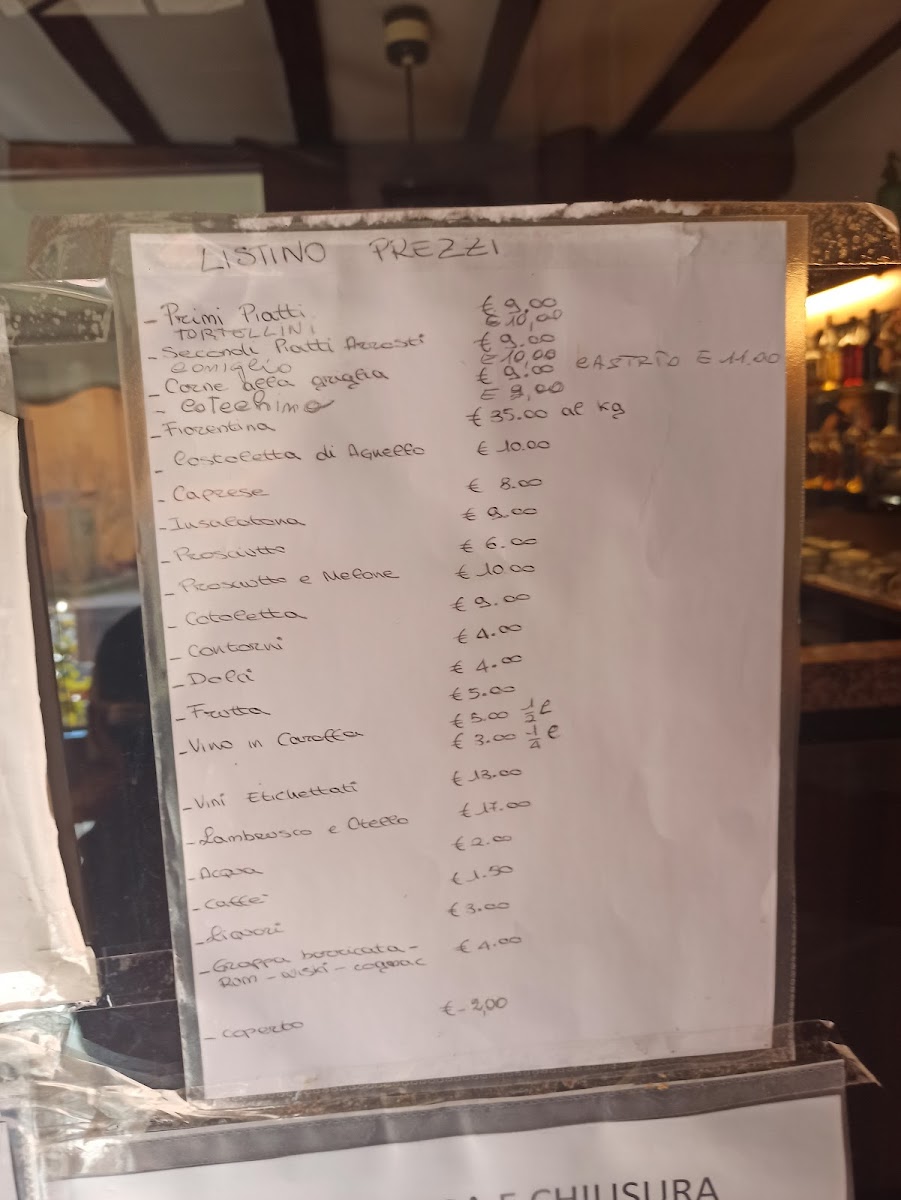 LISTINO PREZZI
- Primi Piatti € 9,00
TORTELLINI € 10,00
- Secondi Piatti Arrosti € 9.00
CONIGLIO € 10,00
- Carne alla griglia € 9.00 CASTRTO € 11.00
- COTECHINO € 9,00
- Fiorentina € 35.00 al Kg
- Costoletta di Agnello € 10.00
- Caprese € 8.00
- Insalatona € 9.00
- Prosciutto € 6.00
- Prosciutto e Melone € 10.00
- Cotoletta € 9.00
- Contorni € 4.00
- Dolci € 4.00
- Frutta € 5.00
- Vino in Caraffa € 5.00 1/2 l
€ 3.00 1/4 l
- Vini Etichettati € 13.00
- Lambrusco e Otello € 17.00
- Acqua € 2.00
- Caffe' € 1.50
- Liquori € 3.00
- Grappa barricata - € 4.00
Rum - wiski - cognac
- coperto €- 2,00
E CHIUSURA